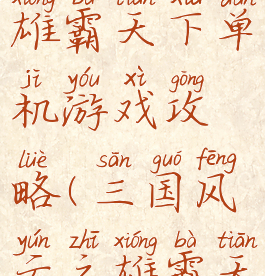 xióng bà tiān xià dān
雄霸天下单
jī yóu xì gōng
机游戏攻
lüè sān guó fēng
略(三国风
yún zhī xióng bà tiān
云之雄霸天